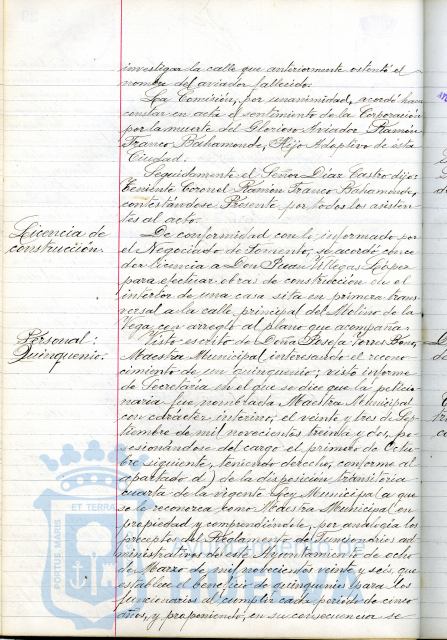 investigar la calle que anteriormente ostentó el
nombre del aviador fallecido.
La Comisión, por unanimidad, acordó hacer
constar en acta el sentimiento de la Corporación
por la muerte del Glorioso Aviador Ramón
Franco Bahamonde, Hijo Adoptivo de esta
Ciudad.
Seguidamente el Señor Díaz Castro dijo:
Teniente Coronel Ramón Franco Bahamonde,
contestándose Presente por todos los asisten-
tes al acto.
Licencia de
construcción.
De conformidad con lo informado por
el Negociado de Fomento, se acordó conce-
der licencia a Don Juan Villegas López
para efectuar obras de construcción en el
interior de una casa sita en primera trans-
versal a la calle principal del Molino de la
Vega, con arreglo al plano que acompaña.
Personal:
Quinquenio.
Visto escrito de Doña Josefa Torres
Maestra Municipal interesando el recono-
cimiento de un quinquenio; visto informe
de Secretaría en el que se dice que la peticio-
naria fue nombrada Maestra Municipal
con carácter interino, el veinte y tres de Sep-
tiembre de mil novecientos treinta y dos, po-
sesionándose del cargo el primero de Octu-
bre siguiente, teniendo derecho, conforme al
apartado d) de la disposición transitoria
cuarta de la vigente Ley Municipal a que
se le reconozca como Maestra Municipal en
propiedad y comprendiéndole, por analogía los
preceptos del Reglamento de Funcionarios ad-
ministrativos de este Ayuntamiento de ocho
de Marzo de mil novecientos veinte y seis, que
establece el beneficio de quinquenios para los
funcionarios al cumplir cada periodo de cinco
años, y proponiendo, en su consecuencia se
PORTUS MARIS
ET TERRAE